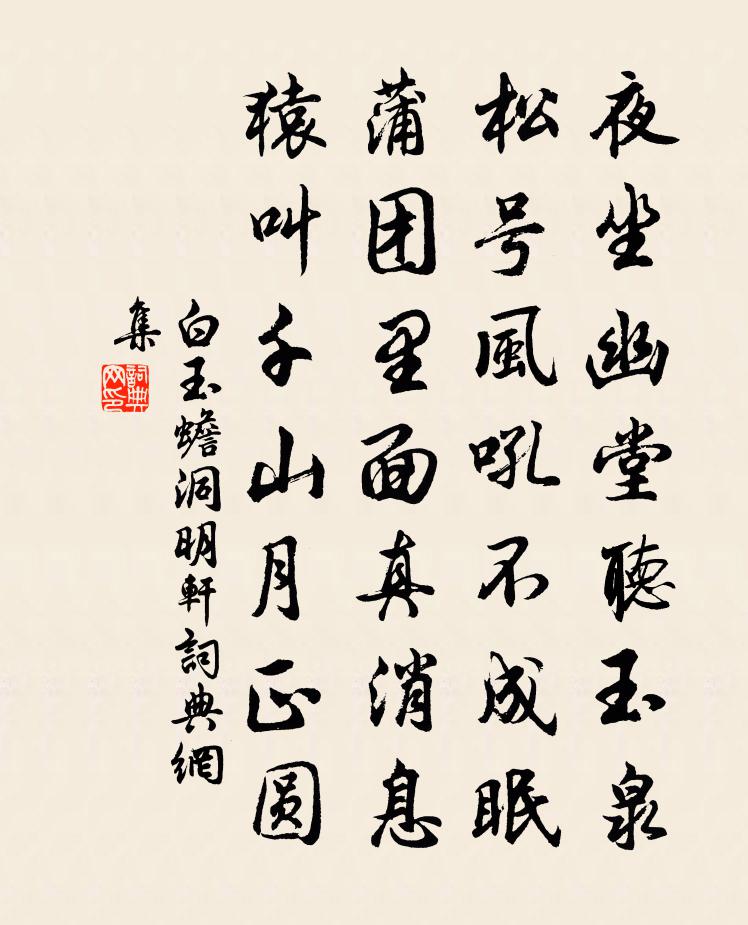 夜坐幽堂聽玉泉
松号風吼不成眠
蒲团里面真消息
猿叫千山月正圆
白玉蟾洞明軒詞典網
集
詞典网印